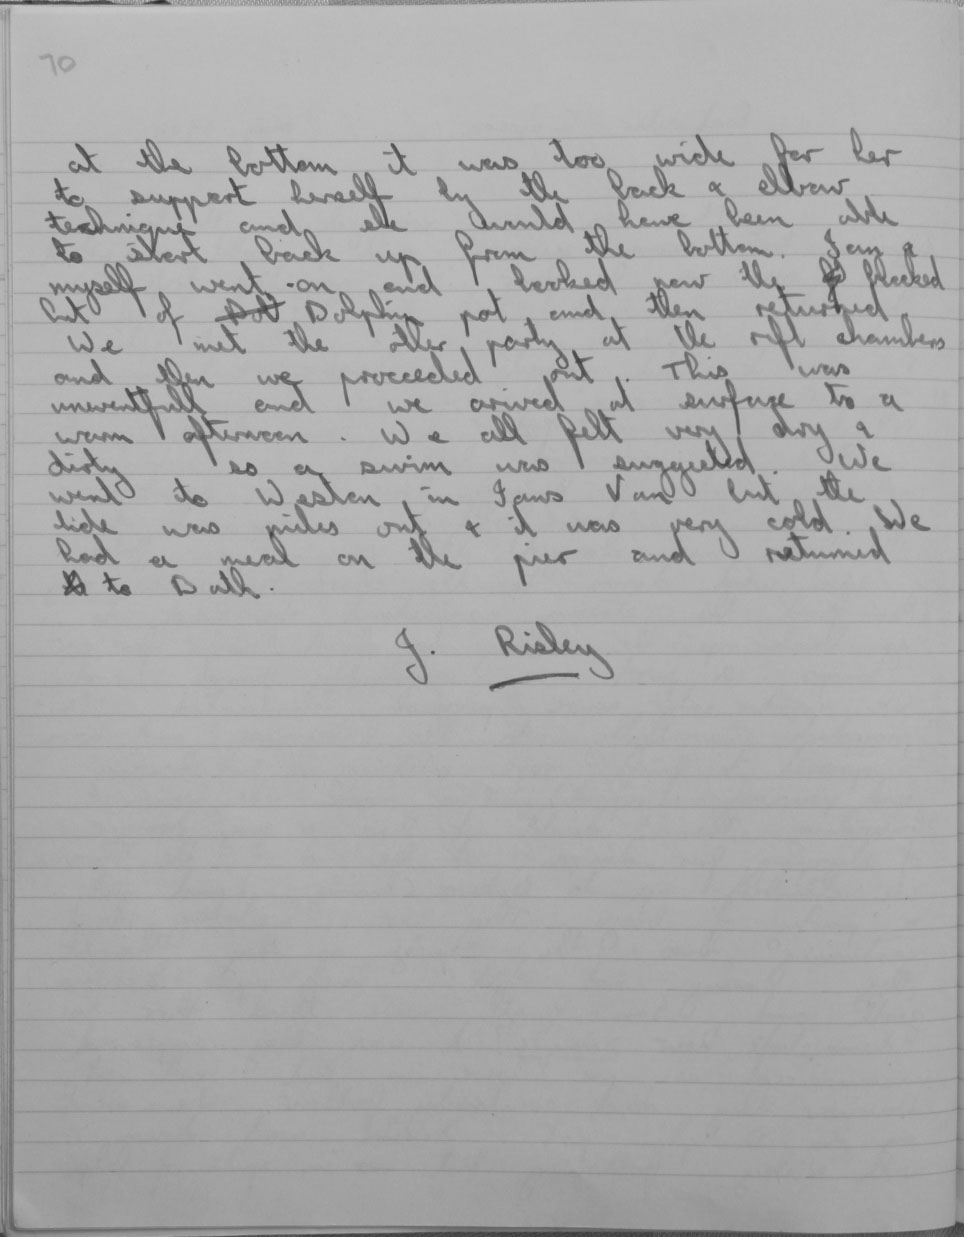 70
at the bottom it was too wide for her
to support herself by the back & elbow
technique and she would have been able
to start back up from the bottom. Ian &
myself went on and looked now the blocked
but of Dolphin pot and then returned.
We met the other party at the rift chambers
and then we proceeded out. This was
uneventfull and we arived at surface to a
warm afternoon. We all felt very dry &
dirty so a swim was suggested. We
went to Weston in Ians Van but the
tide was miles out & it was very cold. We
had a meal on the pier and returned
to Bath.
J. Risley